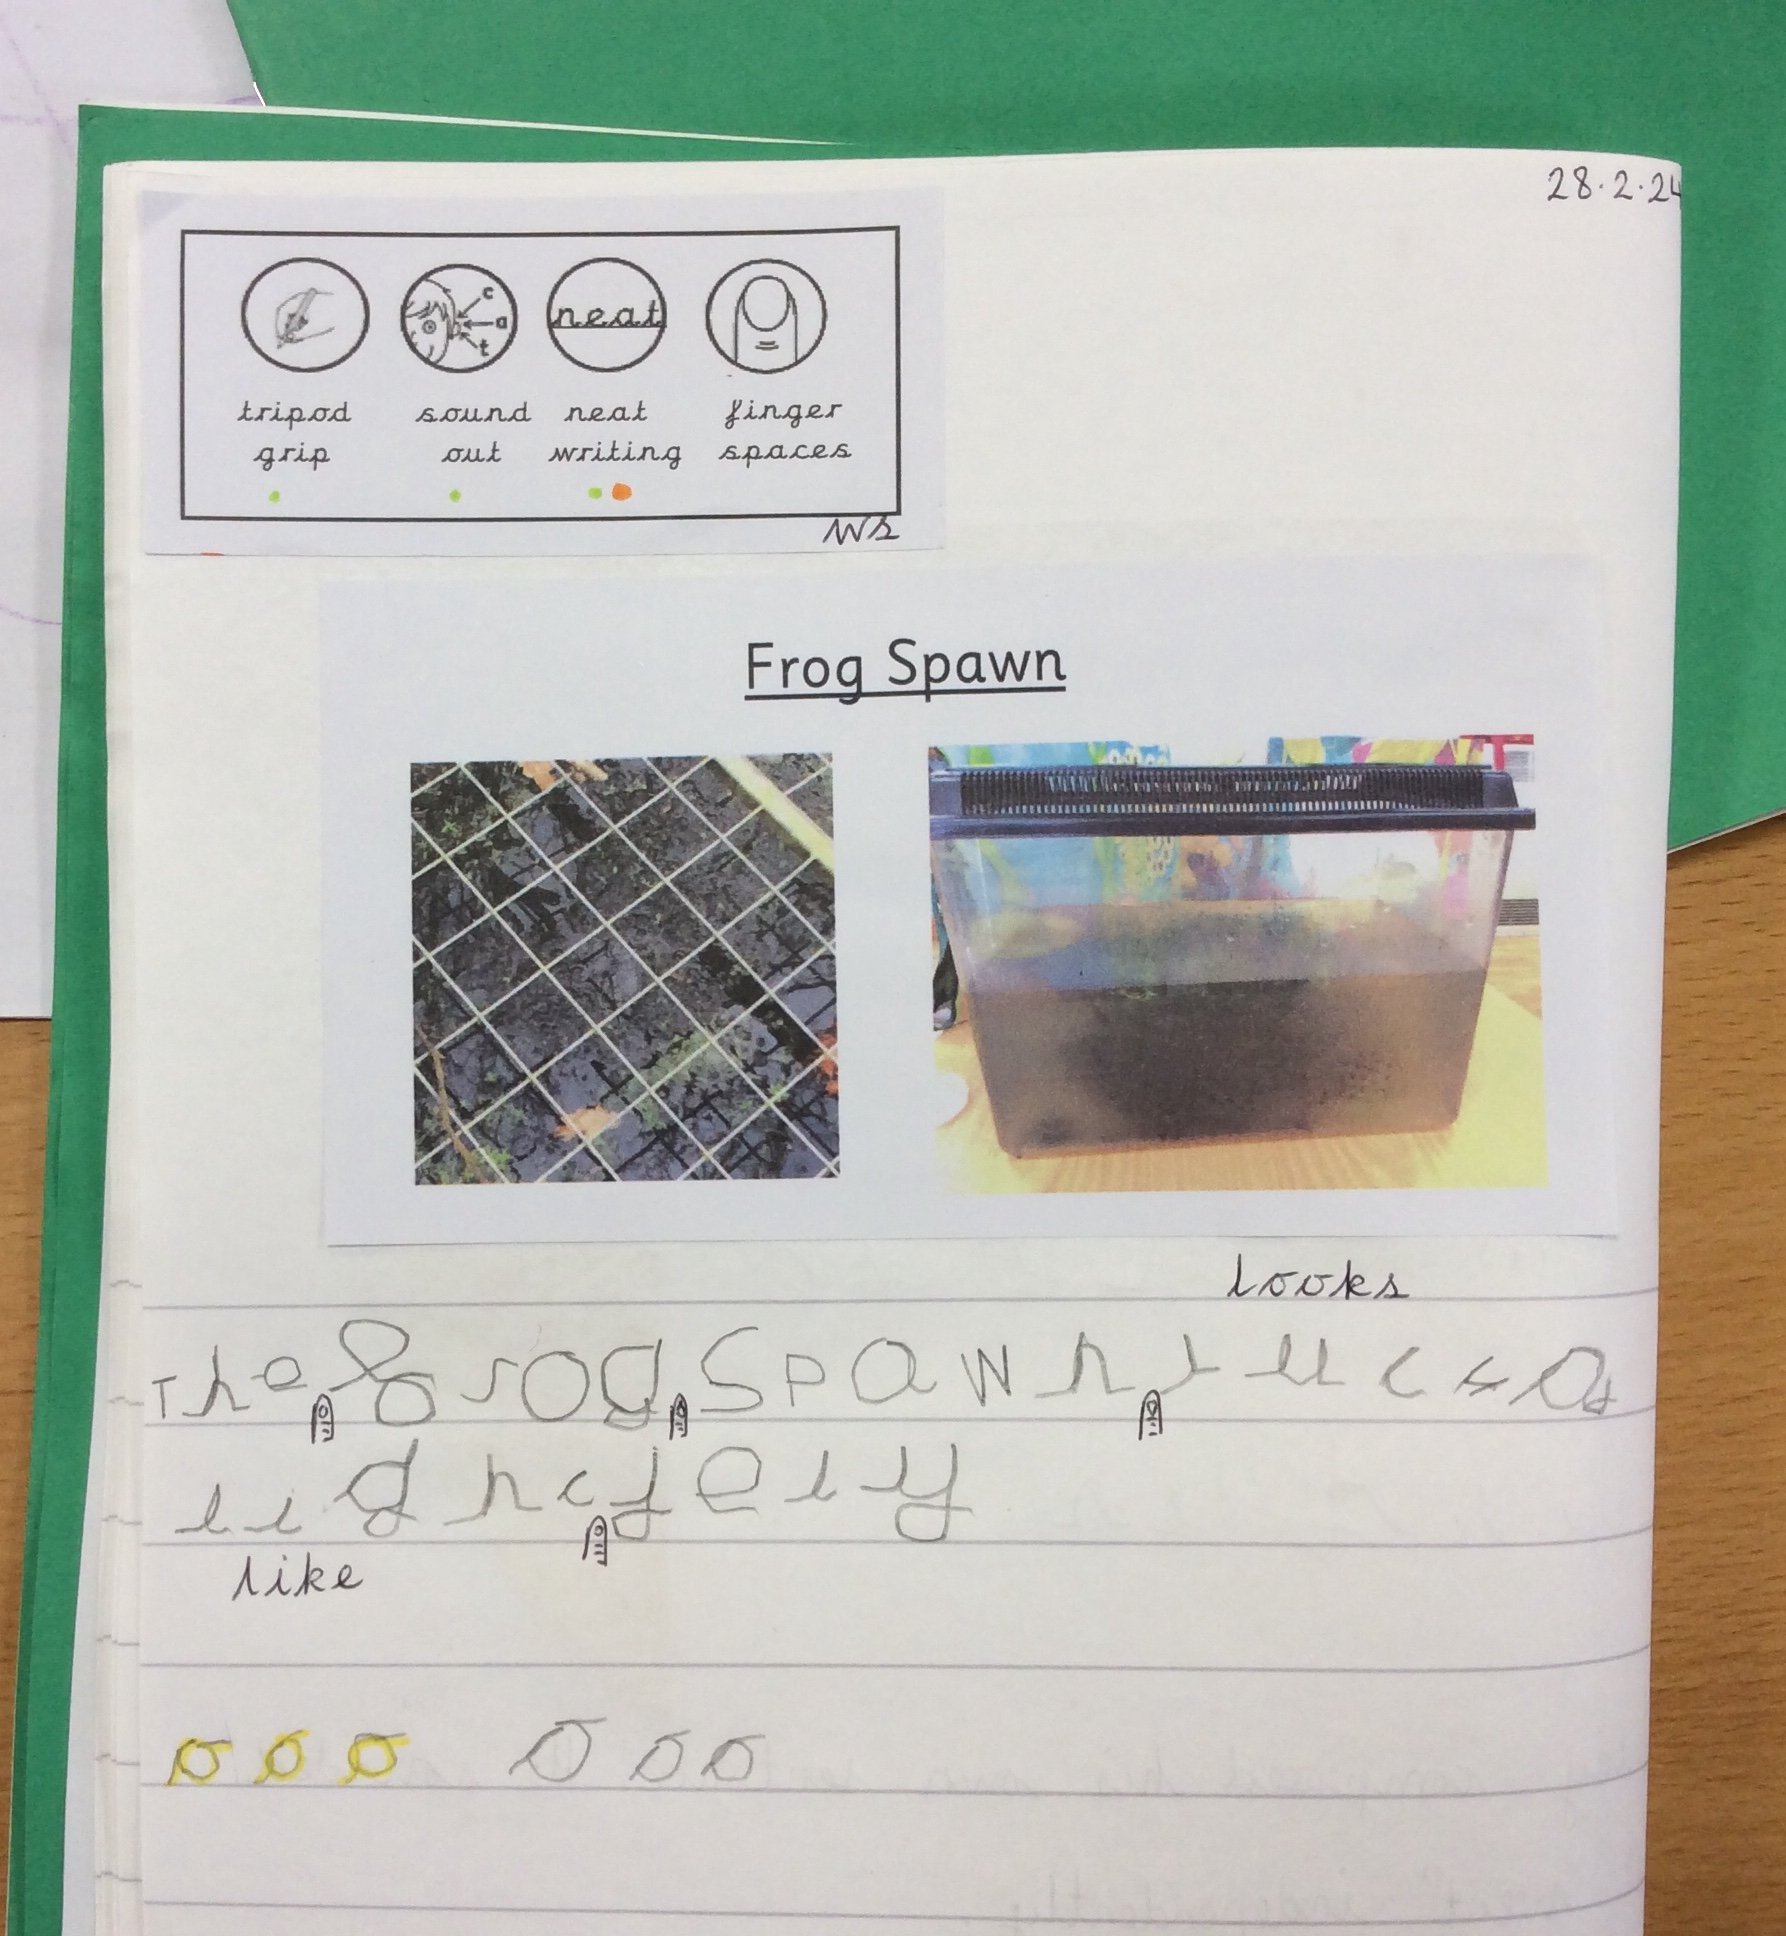 28.2.24
c
a
t
neat
tripod sound neat finger
grip out writing spaces
WS
Frog Spawn
looks
The frog Spawn
jely
like
o o o o o o